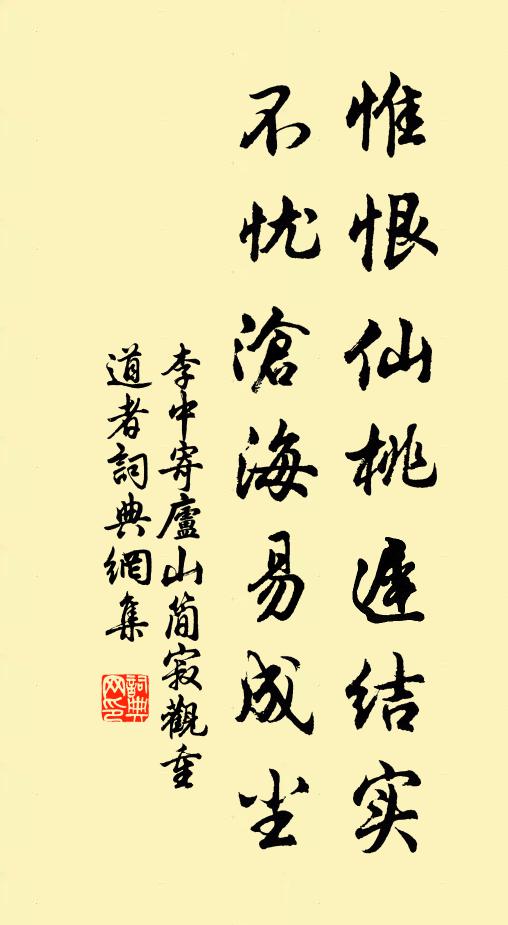 惟恨仙桃遲结实
不忧滄海易成尘
李中寄廬山简寂觀重
道者詞典網集
詞典
网印